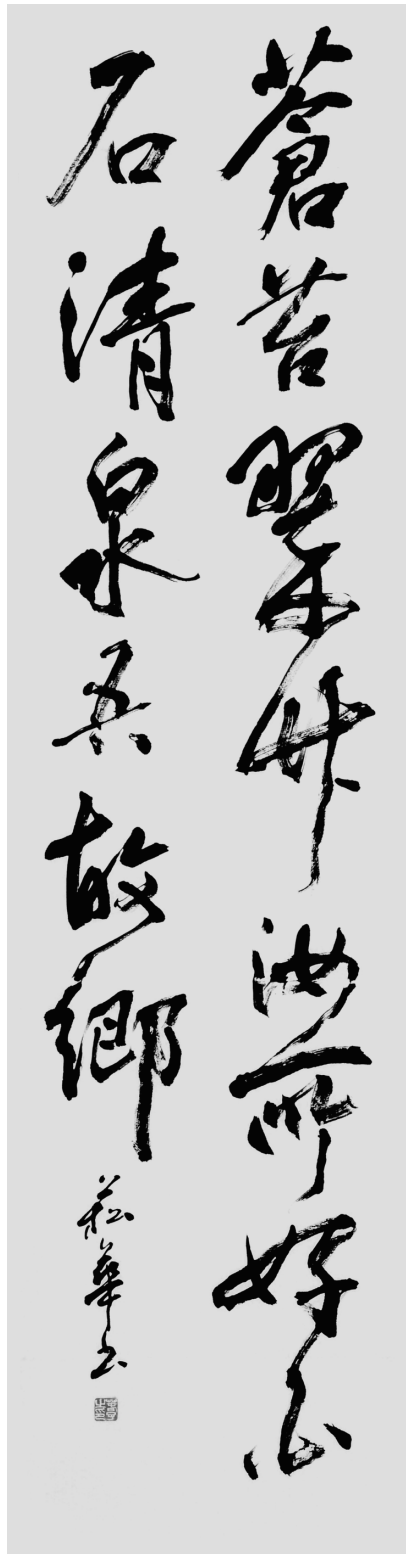 蒼苔翠竹汝所好白
石清泉吾故鄉
菘華書